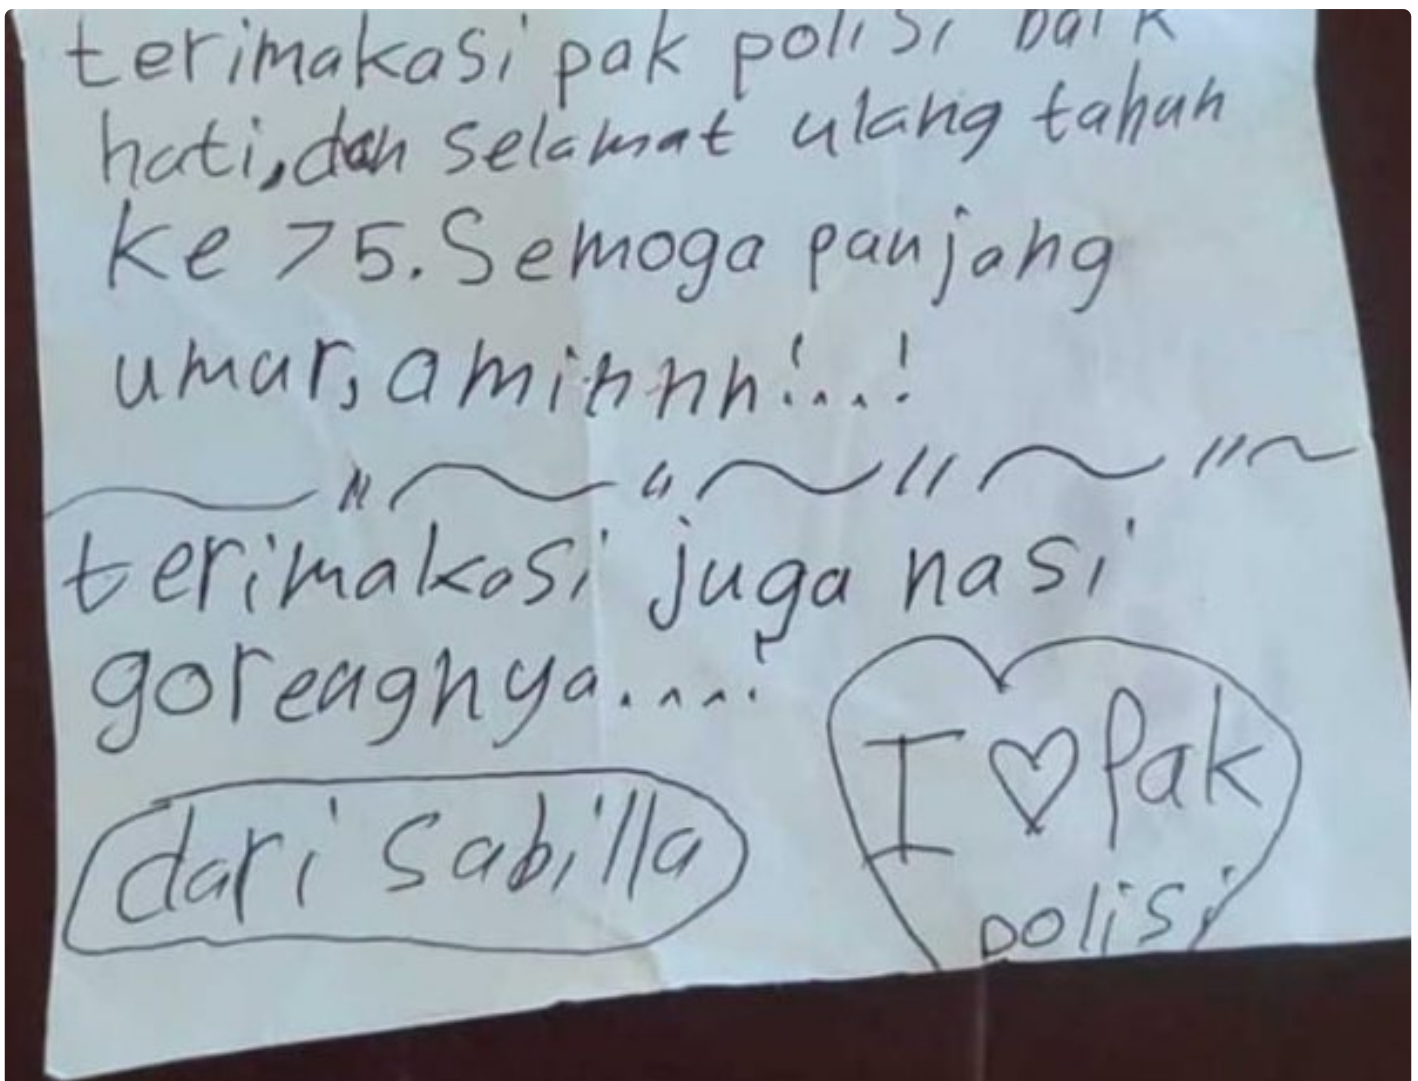 terimakasi pak polisi baik
hati, dan selamat ulang tahun
ke 75. Semoga panjang
umur, aminnn!...!
terimakasi juga nasi
gorengnya....!
dari Sabilla
I ♡ Pak
polisi